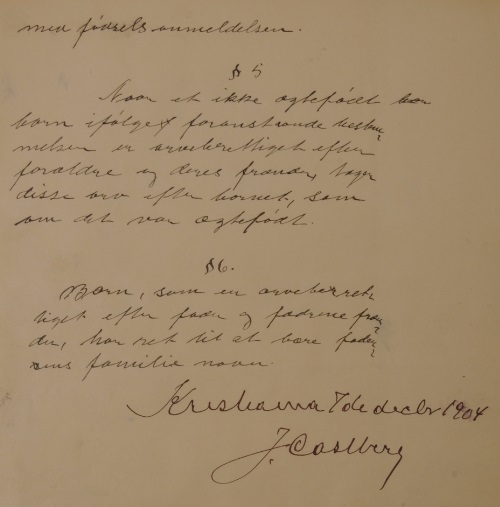 med fødsels anmeldelsen.
§ 5
Naar et ikke ægtefødt
barn ifølge foranstaaende bestem-
melser er arveberettiget efter
forældre og deres frænder, tager
disse arv efter barnet, som
om det var ægtefødt.
§ 6.
Børn, som er arveberret-
tiget efter fader og fædrene fræn-
der, har ret til at bære fader-
ens familie navn.
Kristiania 7de decbr 1904
J. Castberg